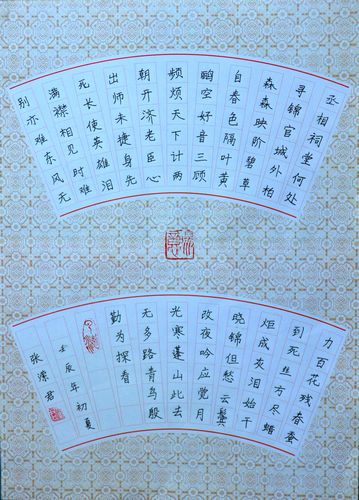 丞相祠堂何处
寻锦官城外柏
森森映阶碧草
自春色隔叶黄
鹂空好音三顾
频烦天下计两
朝开济老臣心
出师未捷身先
死长使英雄泪
满襟相见时难
别亦难东风无
力百花残春蚕
到死丝方尽蜡
炬成灰泪始干
晓镜但愁云鬓
改夜吟应觉月
光寒蓬山此去
无多路青鸟殷
勤为探看
壬辰年初夏
张君